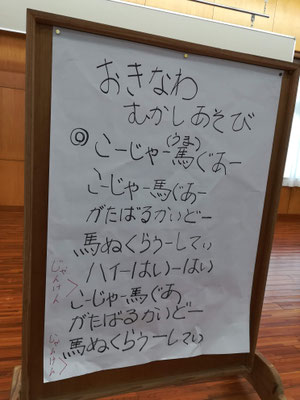 おきなわ
むかしあそび
◎こーじゃー馬(うま)ぐあー
こーじゃー馬ぐあー
がたばるかいどー
馬ぬくらうーしてぃ
ハイーはいーはい
じゃんけん
こーじゃー馬ぐあ
がたばるかいどー
馬ぬくらうーしてぃ
じゃんけん